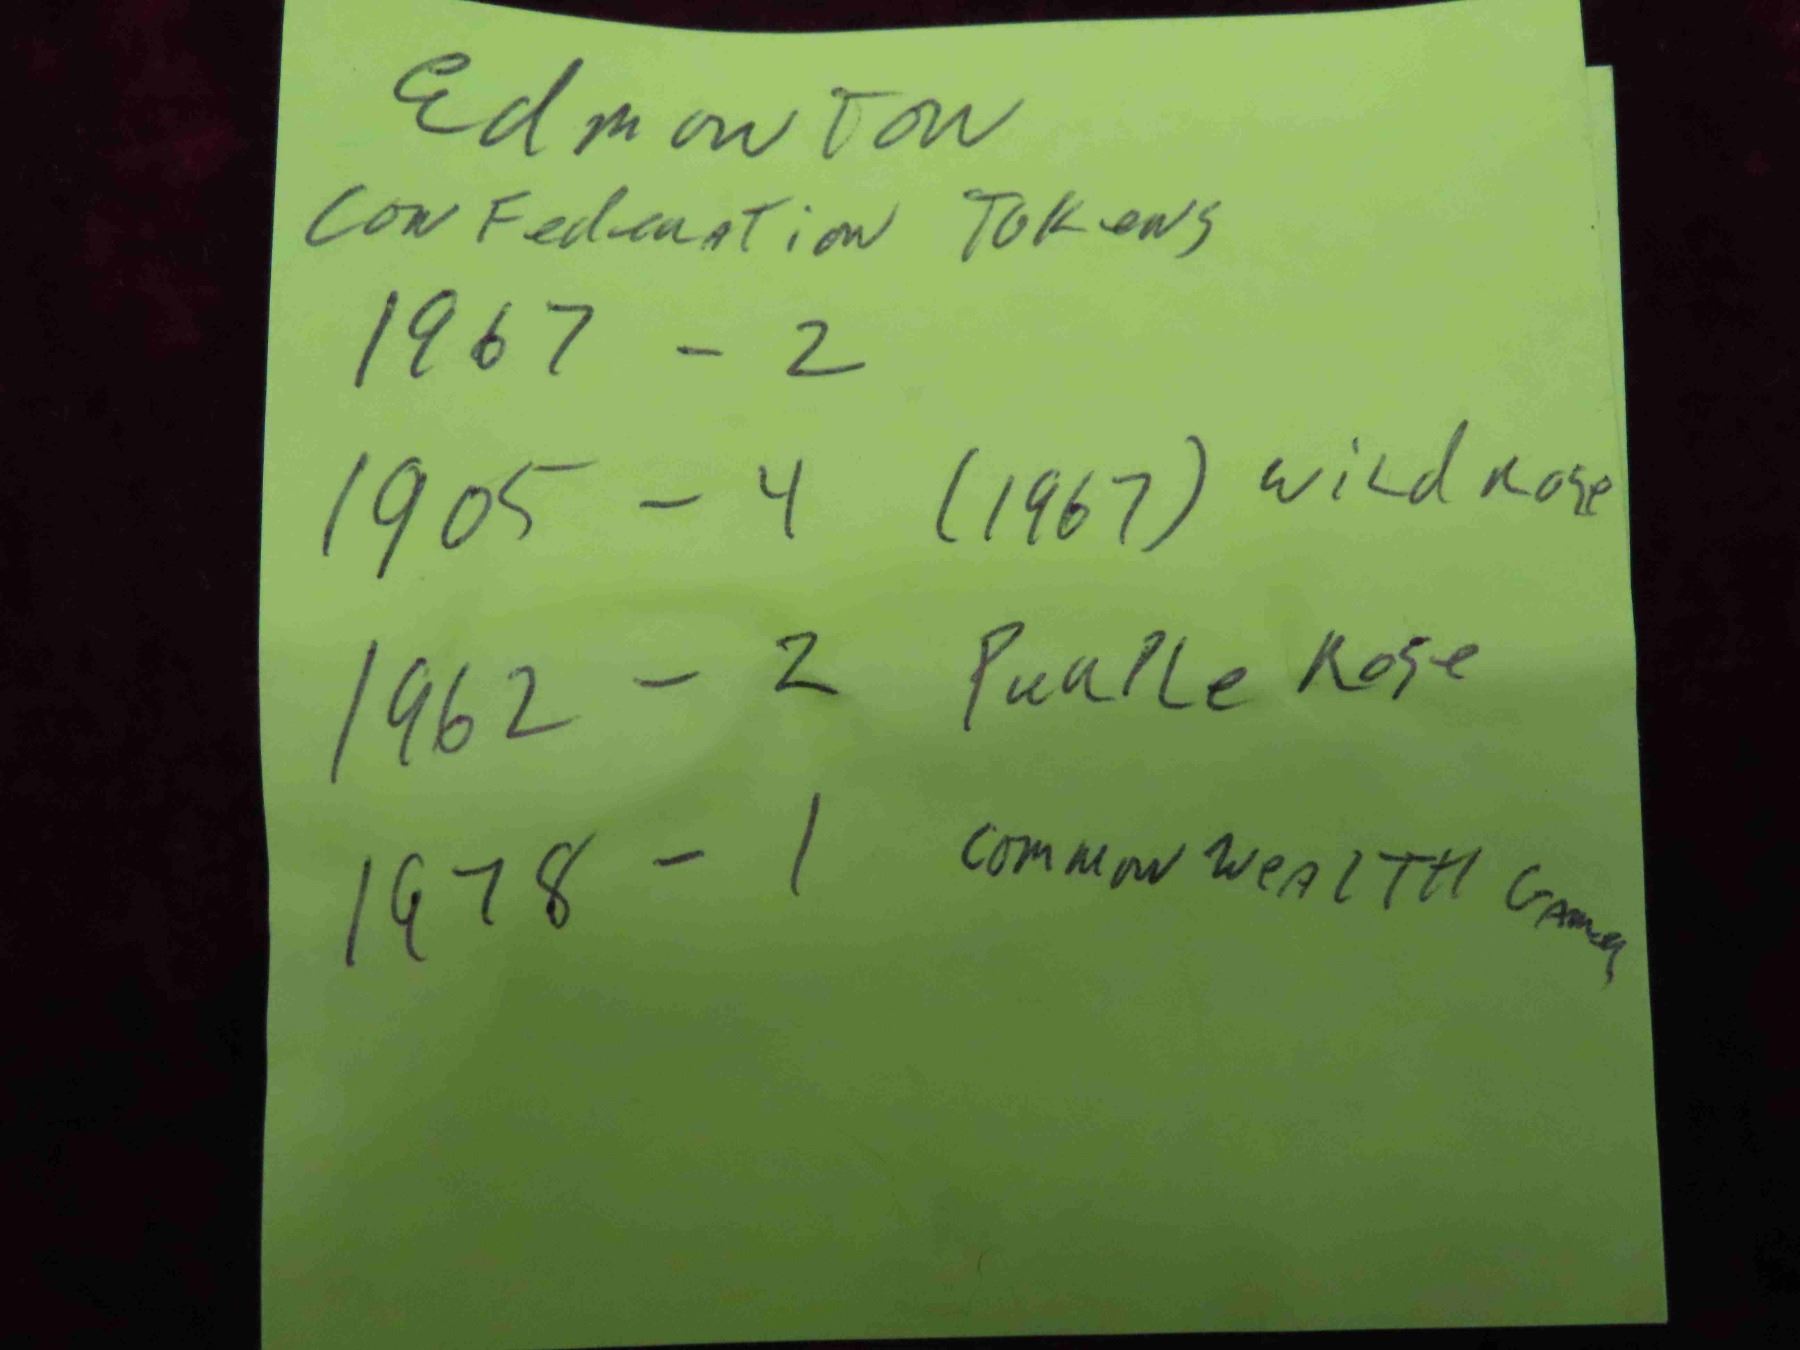 Edmonton
Confederation Tokens
1967 - 2
1905 - 4 (1967) wild Rose
1962 - 2 Purple Rose
1978 - 1 Commonwealth Games